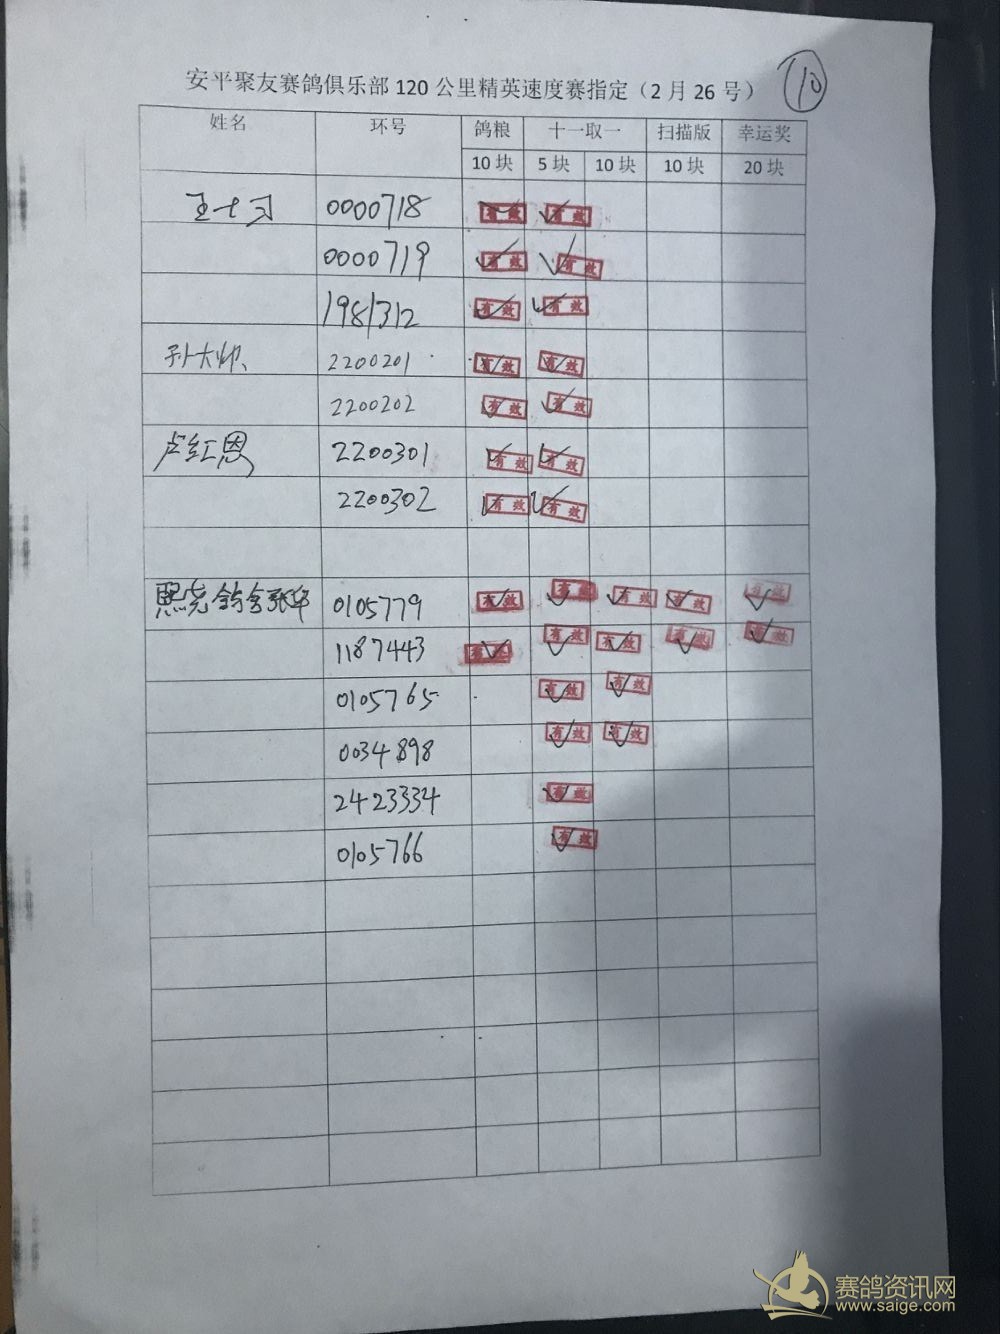 安平聚友赛鸽俱乐部 120 公里精英速度赛指定（2 月 26 号）
10
姓名 环号 鸽粮 十一取一 扫描版 幸运奖
10 块 5 块 10 块 10 块 20 块
王十习 0000718 有效 有效
0000719 有效 有效
1981312 有效 有效
孙大帅 2200201 有效 有效
2200202 有效 有效
卢红恩 2200301 有效 有效
2200302 有效 有效
鸽舍张华 0105779 有效 有效 有效 有效 有效
1187443 有效 有效 有效 有效 有效
0105765 有效 有效
0034898 有效 有效
2423334 有效
0105766 有效
赛鸽资讯网
www.saige.com